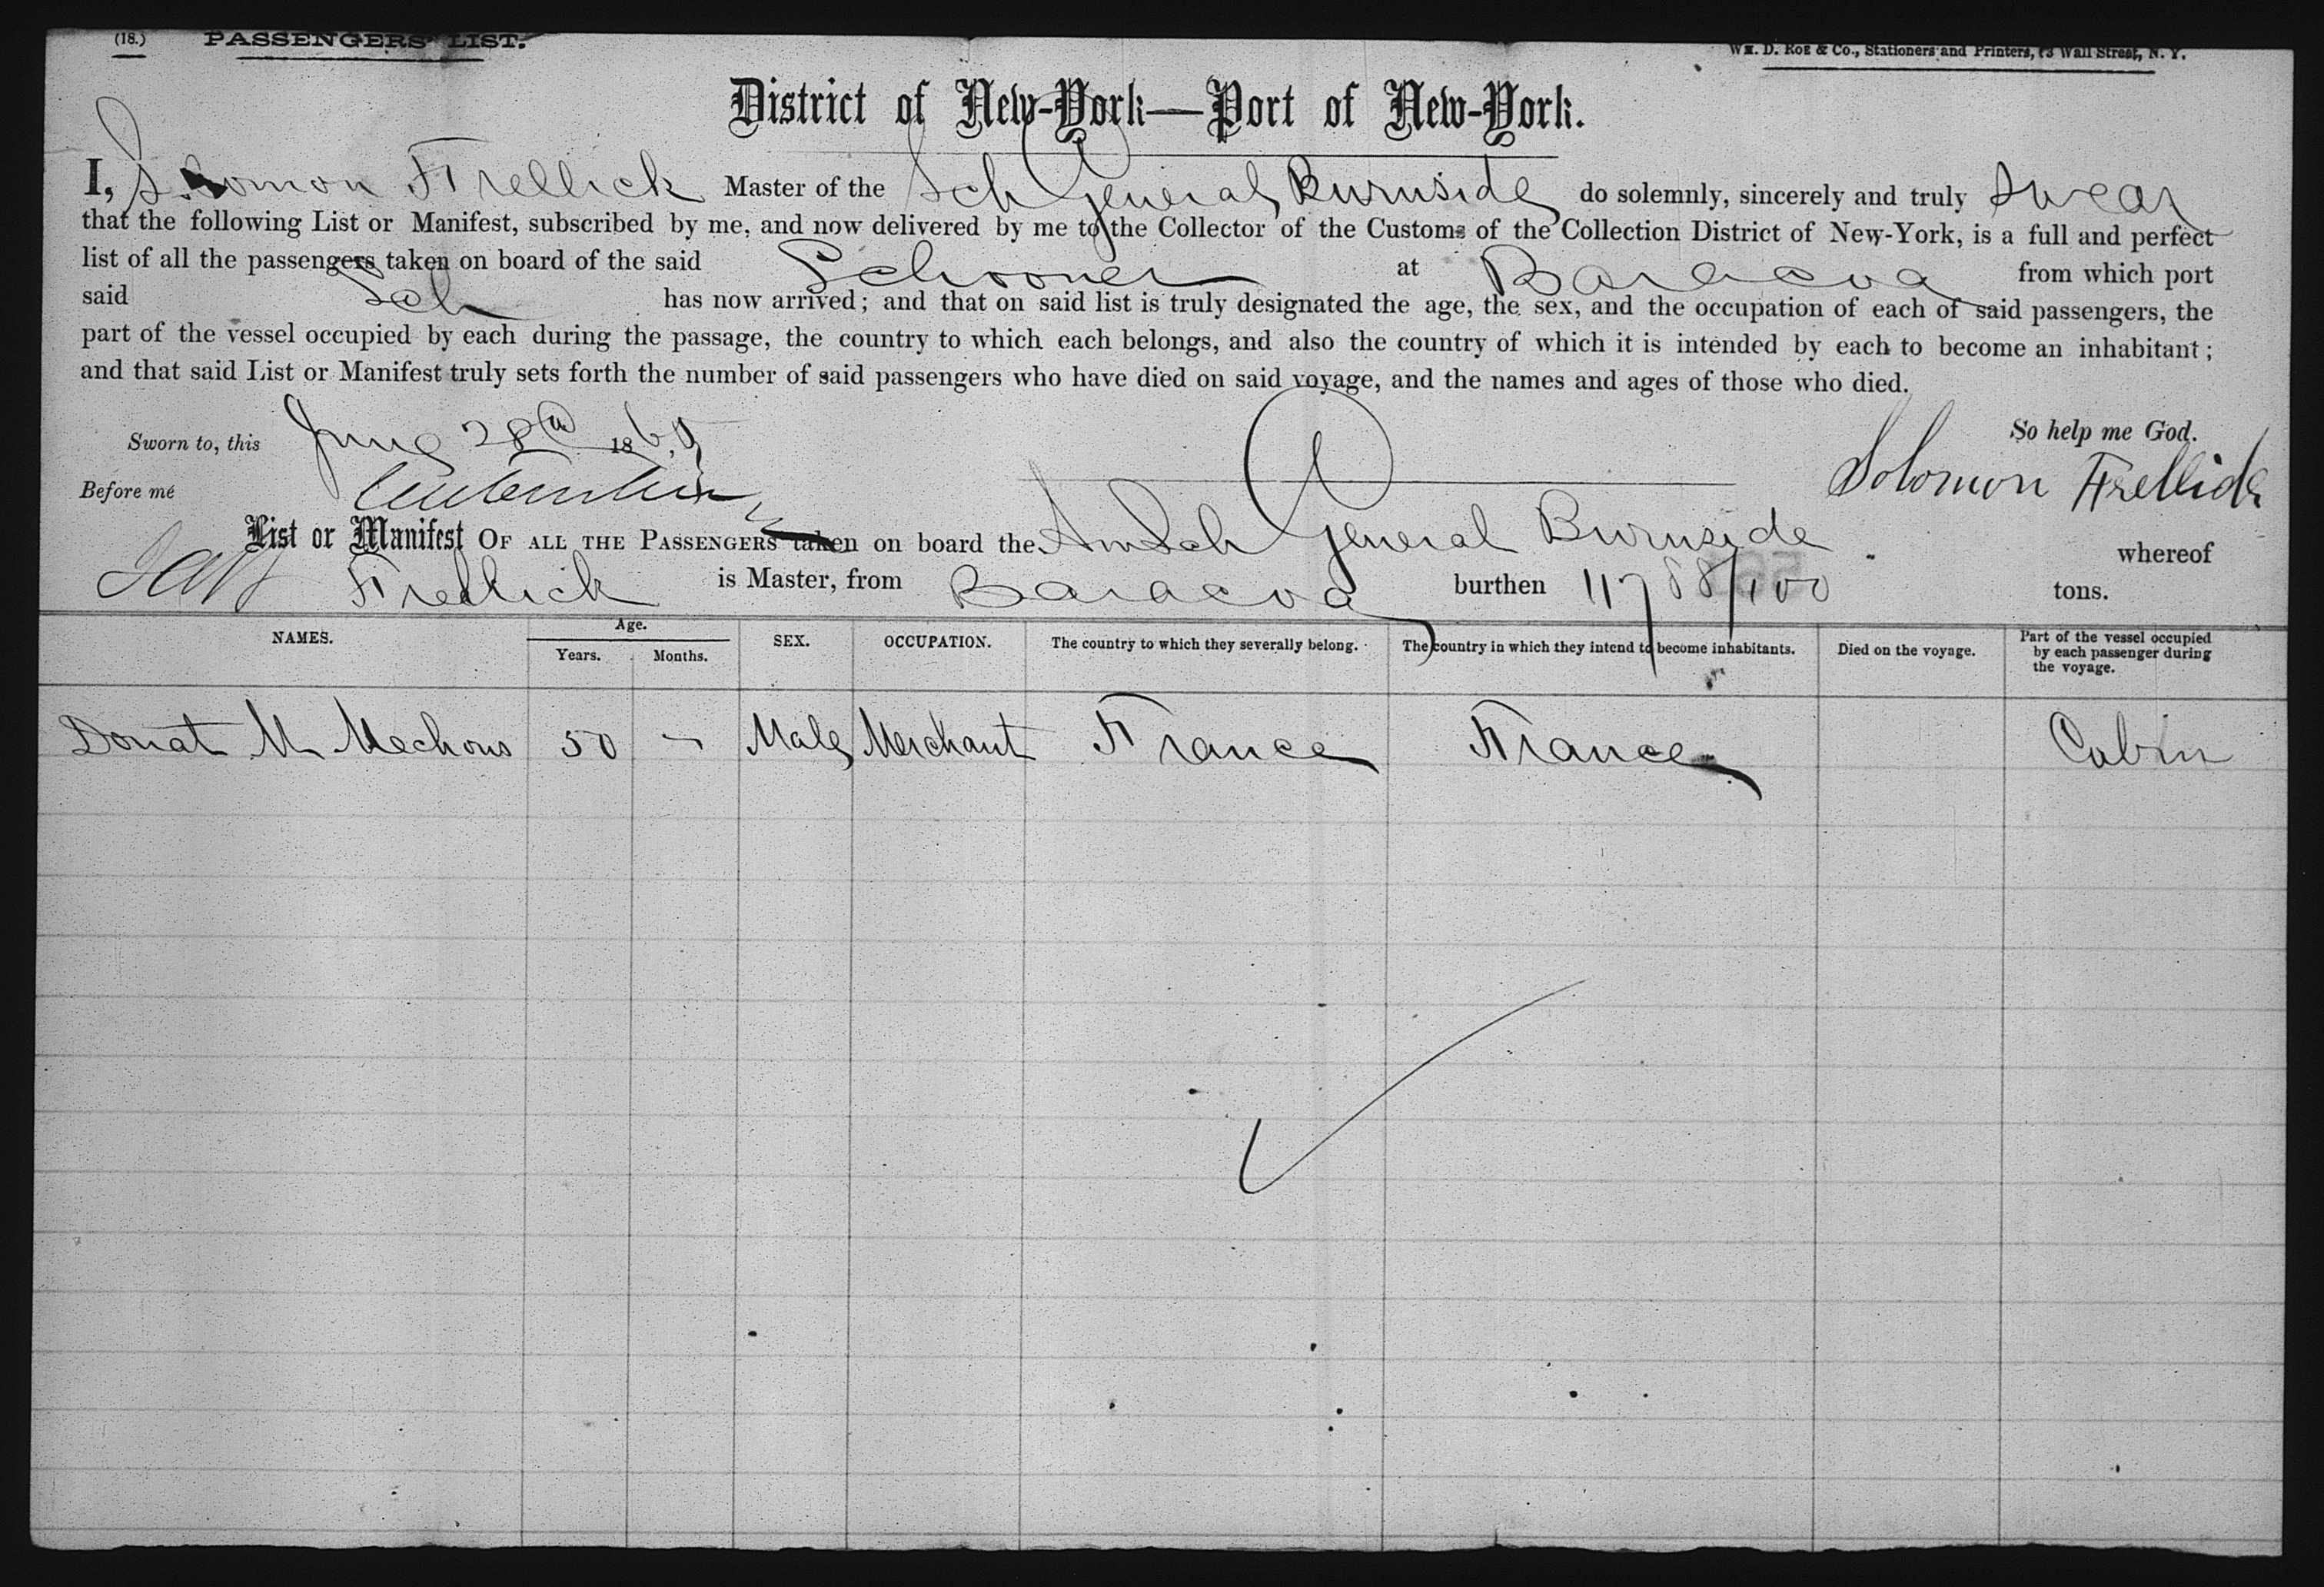 (18.) PASSENGERS' LIST.
Wm. D. Roe & Co., Stationers and Printers, 73 Wall Street, N. Y.
District of New-York—Port of New-York.
I, Solomon Frellick Master of the Sch General Burnside do solemnly, sincerely and truly swear
that the following List or Manifest, subscribed by me, and now delivered by me to the Collector of the Customs of the Collection District of New-York, is a full and perfect
list of all the passengers taken on board of the said Schooner at Baracoa from which port
said Sch has now arrived; and that on said list is truly designated the age, the sex, and the occupation of each of said passengers, the
part of the vessel occupied by each during the passage, the country to which each belongs, and also the country of which it is intended by each to become an inhabitant;
and that said List or Manifest truly sets forth the number of said passengers who have died on said voyage, and the names and ages of those who died.
So help me God.
Sworn to, this June 28th 1869
Solomon Frellick
Before me
List or Manifest OF ALL THE PASSENGERS taken on board the Am Sch General Burnside whereof
Frellick is Master, from Baracoa burthen 117 88/100 tons.
NAMES. Age. Years. Months. SEX. OCCUPATION. The country to which they severally belong. The country in which they intend to become inhabitants. Died on the voyage. Part of the vessel occupied by each passenger during the voyage.
Donat M Mechous 50 - Male Merchant France France Cabin